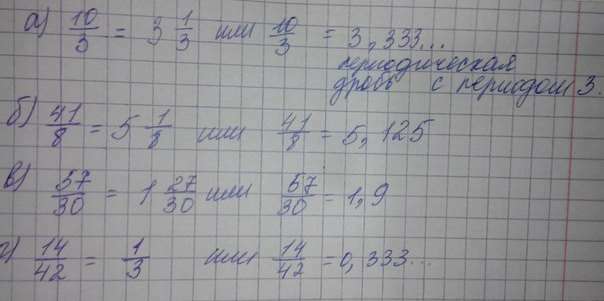 а) 10/3 = 3 1/3 или 10/3 = 3,333...
периодическая
дробь с периодом 3.
б) 41/8 = 5 1/8 или 41/8 = 5,125
в) 57/30 = 1 27/30 или 57/30 = 1,9
г) 14/42 = 1/3 или 14/42 = 0,333...